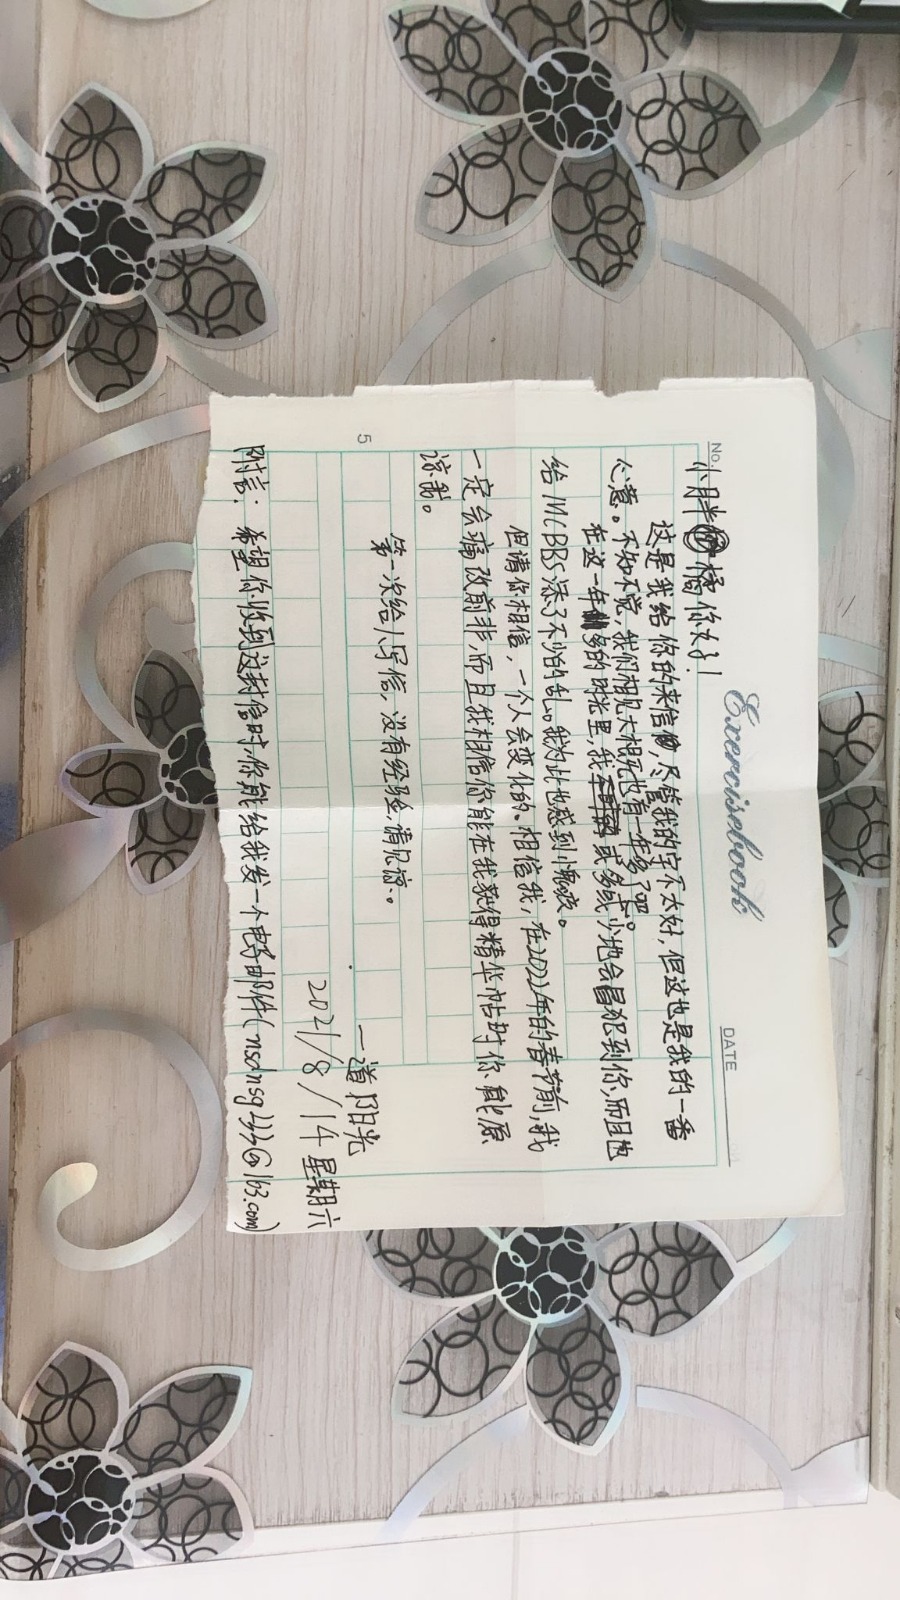 Exercisebook
No.
DATE
小胖橘你好！
这是我给你的来信，尽管我的字不太好，但这也是我的一番
心意。不知不觉，我们相见大概也有一年多了吧。
在这一年多的时光里，我或多或少地会冒犯到你，而且也
给MCBBS添了不少的乱。我为此也感到愧疚。
但请你相信，一个人会变化的。相信我，在2022年的春节前，我
一定会痛改前非，而且我相信你能在我获得精华帖时你能原
谅我。
第一次给人写信，没有经验，请见谅。
5
一道阳光
2021/8/14 星期六
附言：希望你收到这封信时，你能给我发一个电子邮件(